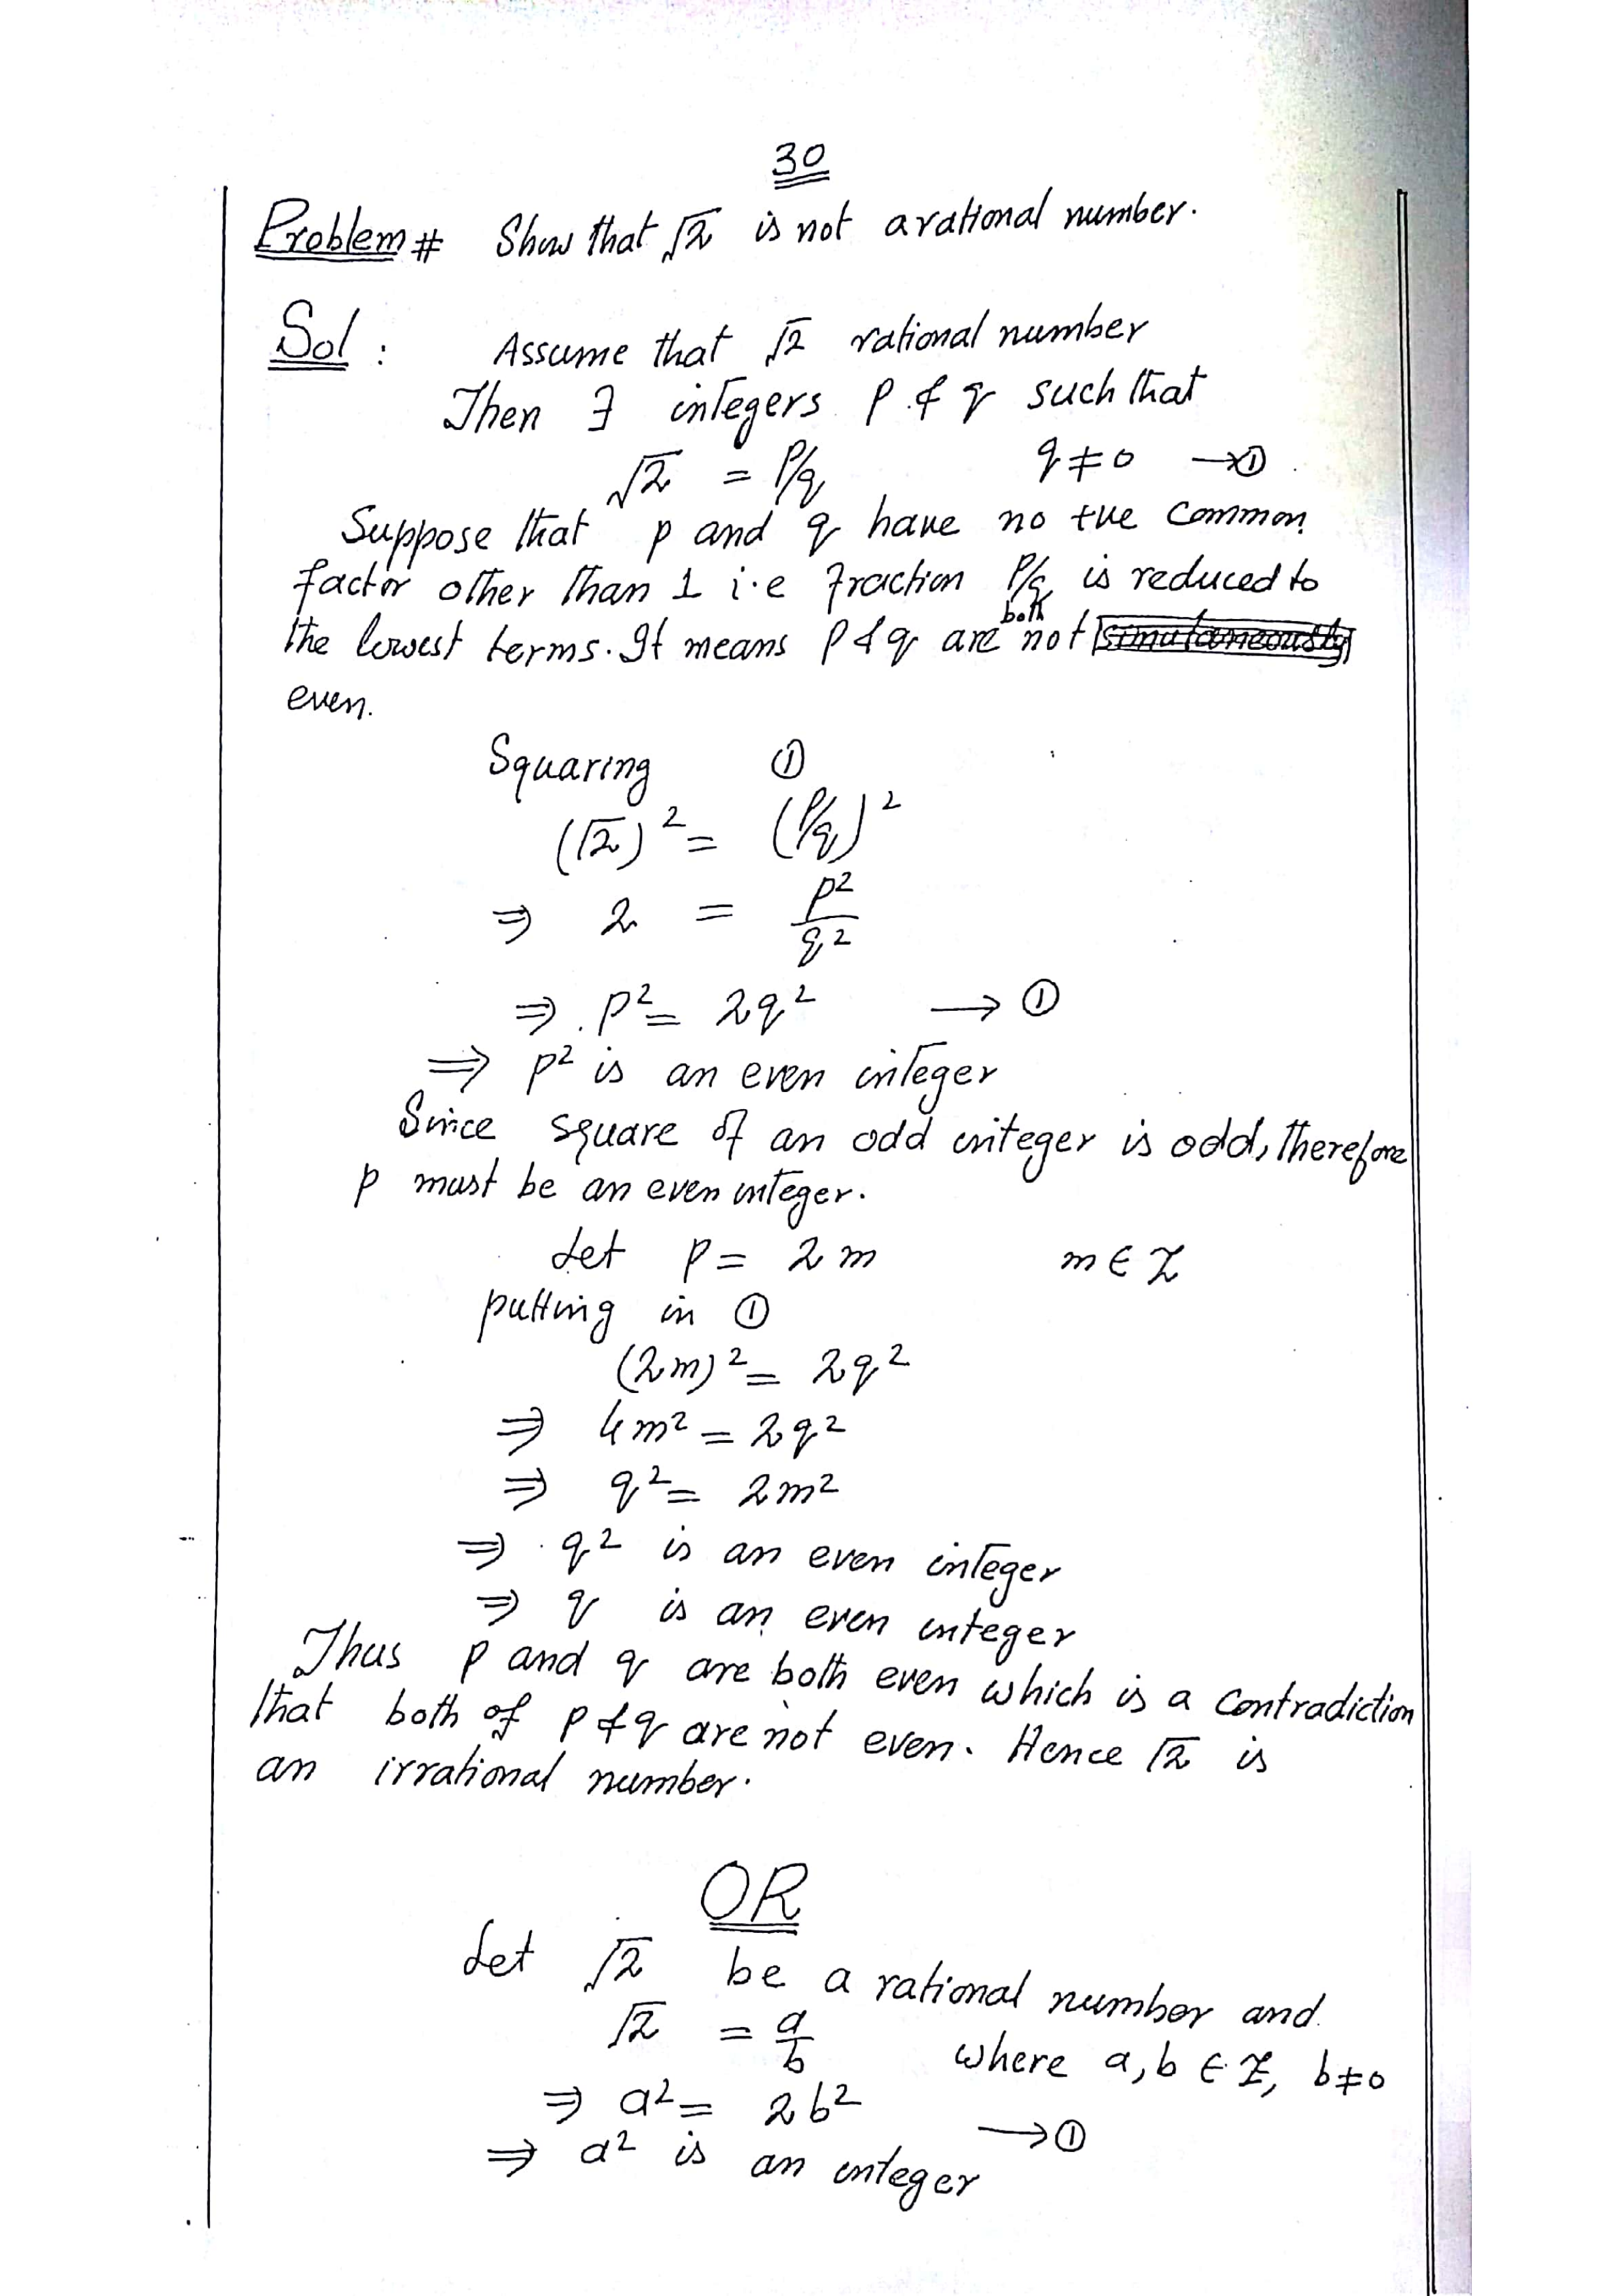 30
Problem # Show that √2 is not a rational number.
Sol : Assume that √2 rational number
Then ∃ integers p & q such that
√2 = p/q q ≠ 0 → ①
Suppose that p and q have no +ve common
factor other than 1 i.e fraction p/q is reduced to
the lowest terms. It means p & q are both not simultaneously
even.
Squaring ①
(√2)² = (p/q)²
⇒ 2 = p²/q²
⇒ p² = 2q² → ①
⇒ p² is an even integer
Since square of an odd integer is odd, therefore
p must be an even integer.
Let p = 2m m ∈ Z
putting in ①
(2m)² = 2q²
⇒ 4m² = 2q²
⇒ q² = 2m²
⇒ q² is an even integer
⇒ q is an even integer
Thus p and q are both even which is a contradiction
that both of p & q are not even. Hence √2 is
an irrational number.
OR
Let √2 be a rational number and
√2 = a/b where a, b ∈ Z, b ≠ 0
⇒ a² = 2b² → ①
⇒ a² is an integer